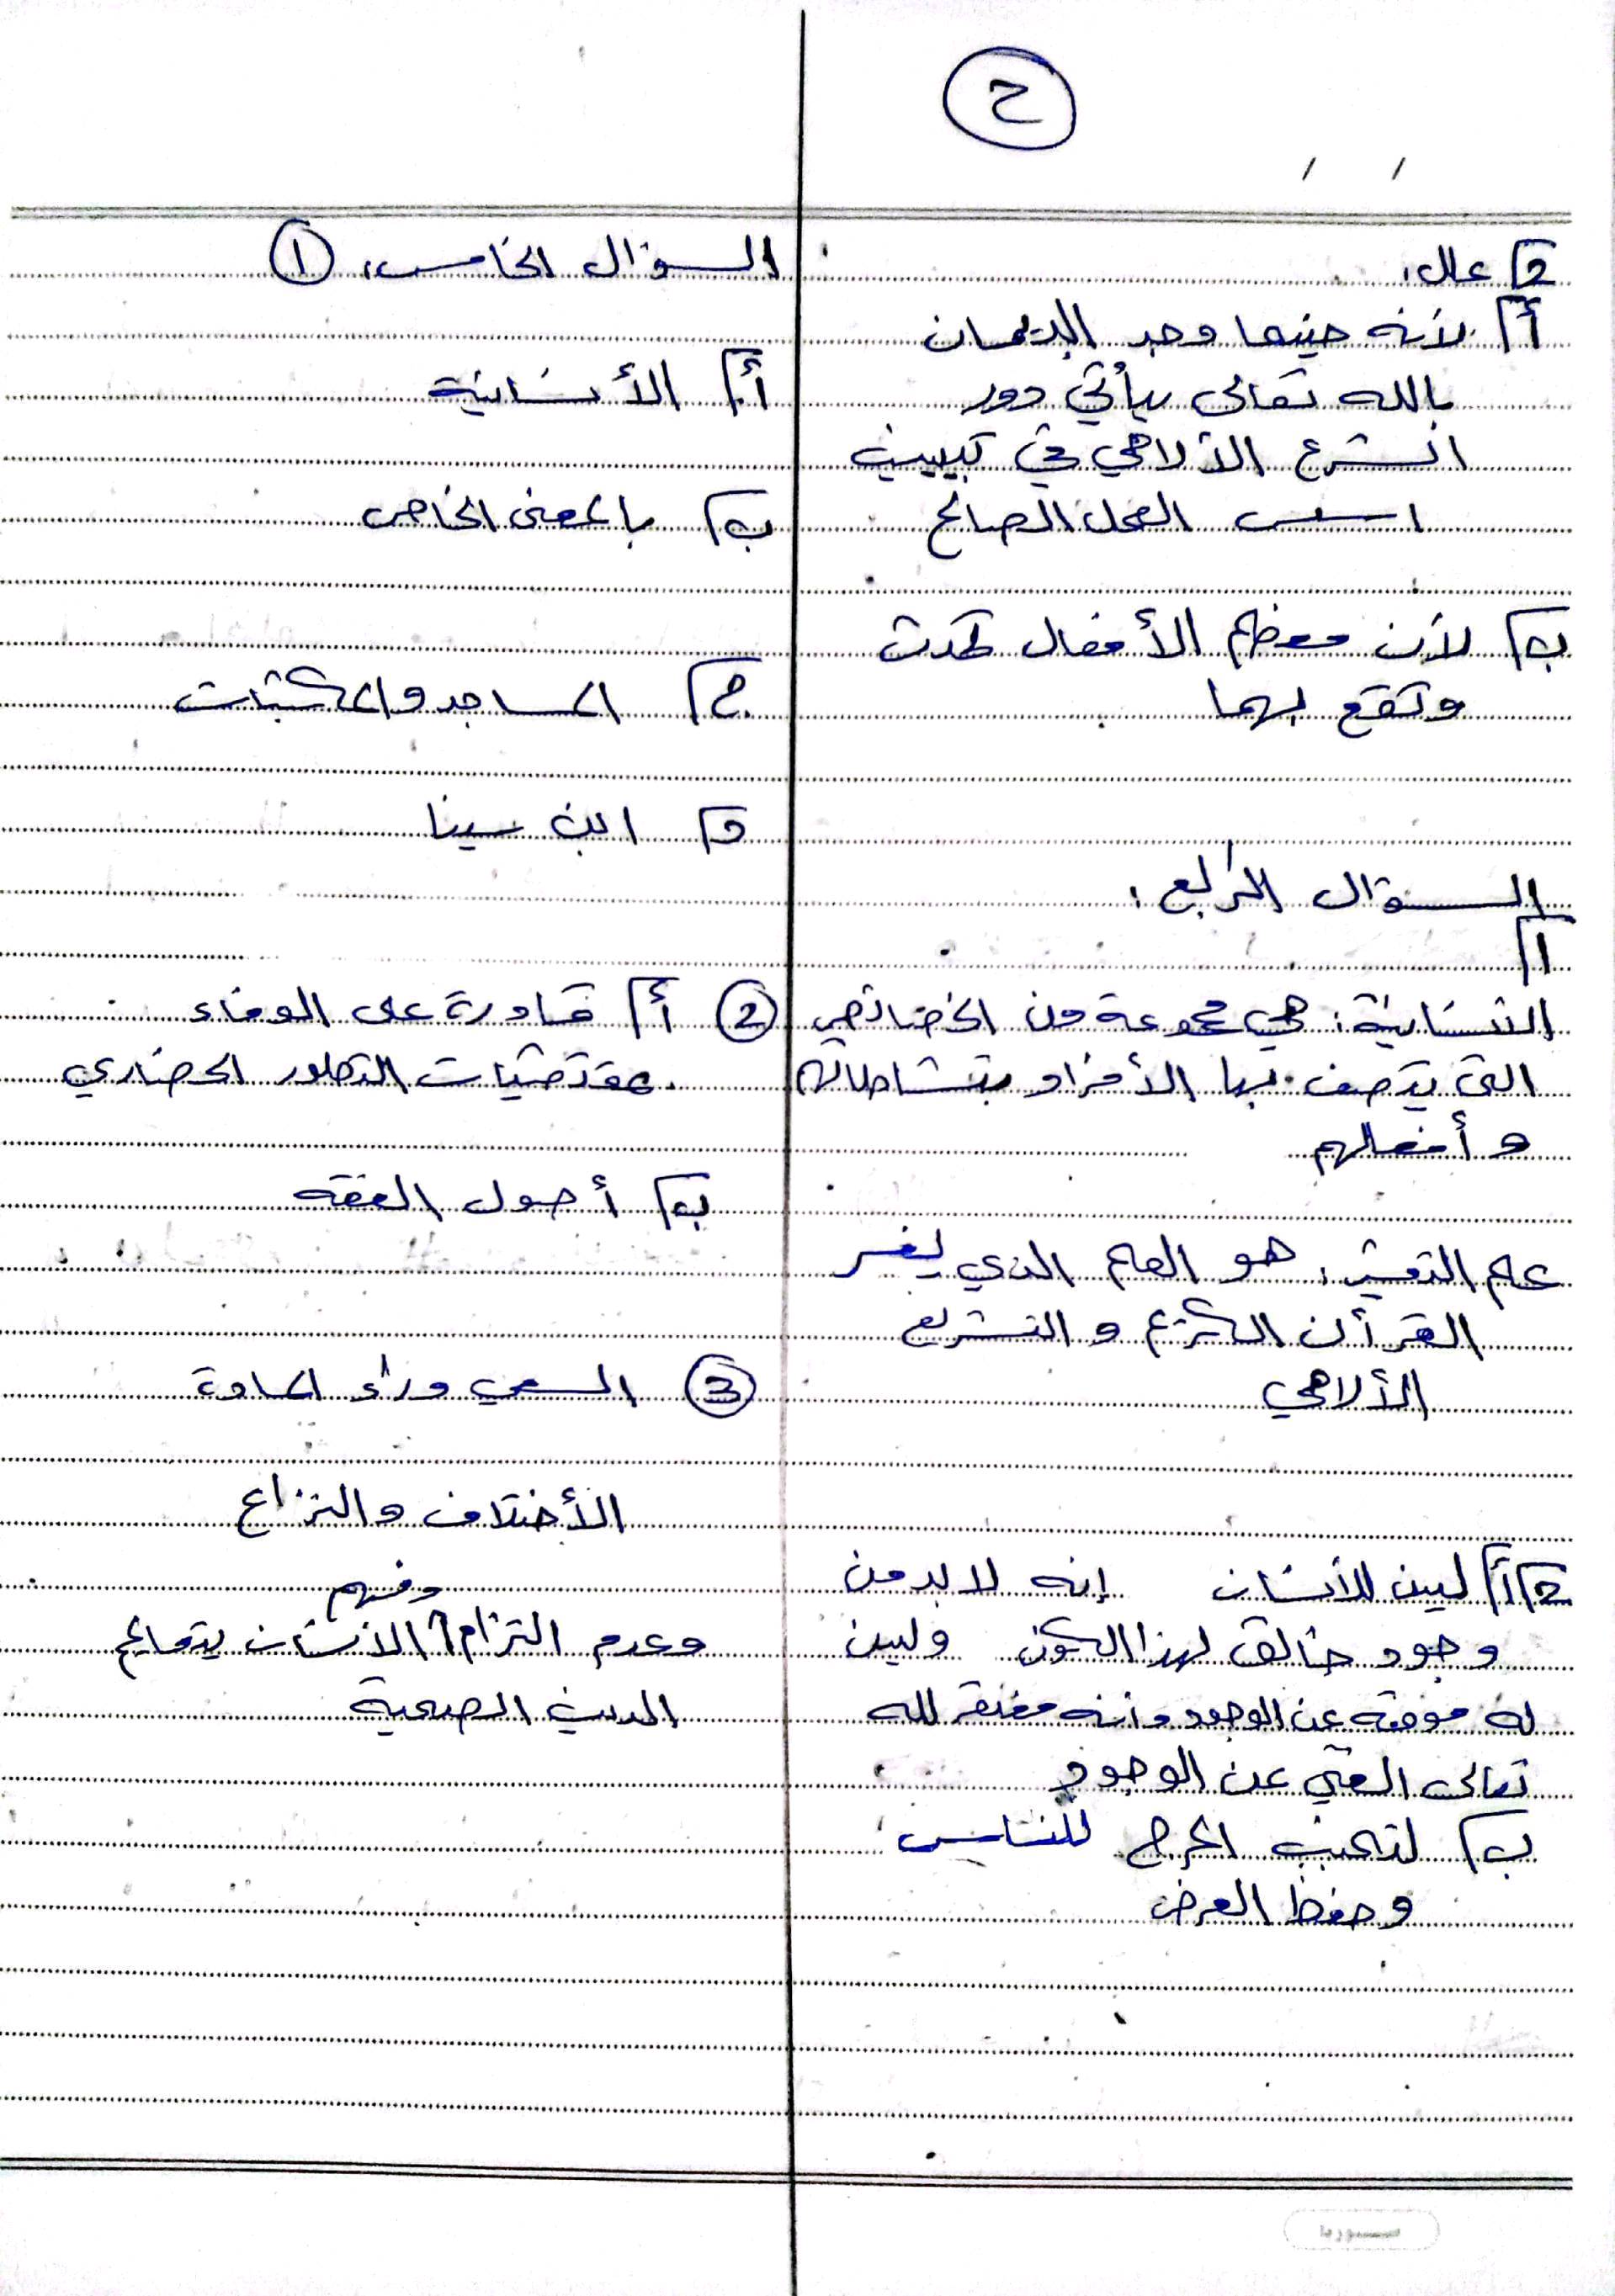 ح
/ /
د) علل:
أ) لأنه حينما وجد الإيمان
بالله تعالى يأتي دور
الشرع الألاهي في تبيين
اسس العمل الصالح
ب) لأن معظم الأفعال تحدث
وتقع بهما
السؤال الرابع:
أ)
الانسانية: هي مجموعة من الخصائص
التي يتصف بها الأفراد بنشاطاتهم
و أفعالهم
علم التفسير: هو العلم الذي يفسر
القرآن الكريم و التشريع
الألاهي
2) أ) ليبين للأنسان إنه لابد من
وجود خالق لهذا الكون وليبين
له موقعه عن الوجود وانه مفتقر لله
تعالى الغني عن الوجود
ب) لتجنب الحرج للناس
وحفظ العرض
السؤال الخامس: ①
أ) الأنسانية
ب) بالمعنى الخاص
ج) المساجد والمكتبات
د) ابن سينا
② أ) قادرة على الوفاء
بمقتضيات التطور الحضاري
ب) أصول الفقه
③ السعي وراء المادة
الأختلاف والنزاع
وفهم
وعدم التزام الانسان بتعاليم
الدين الصحيحة